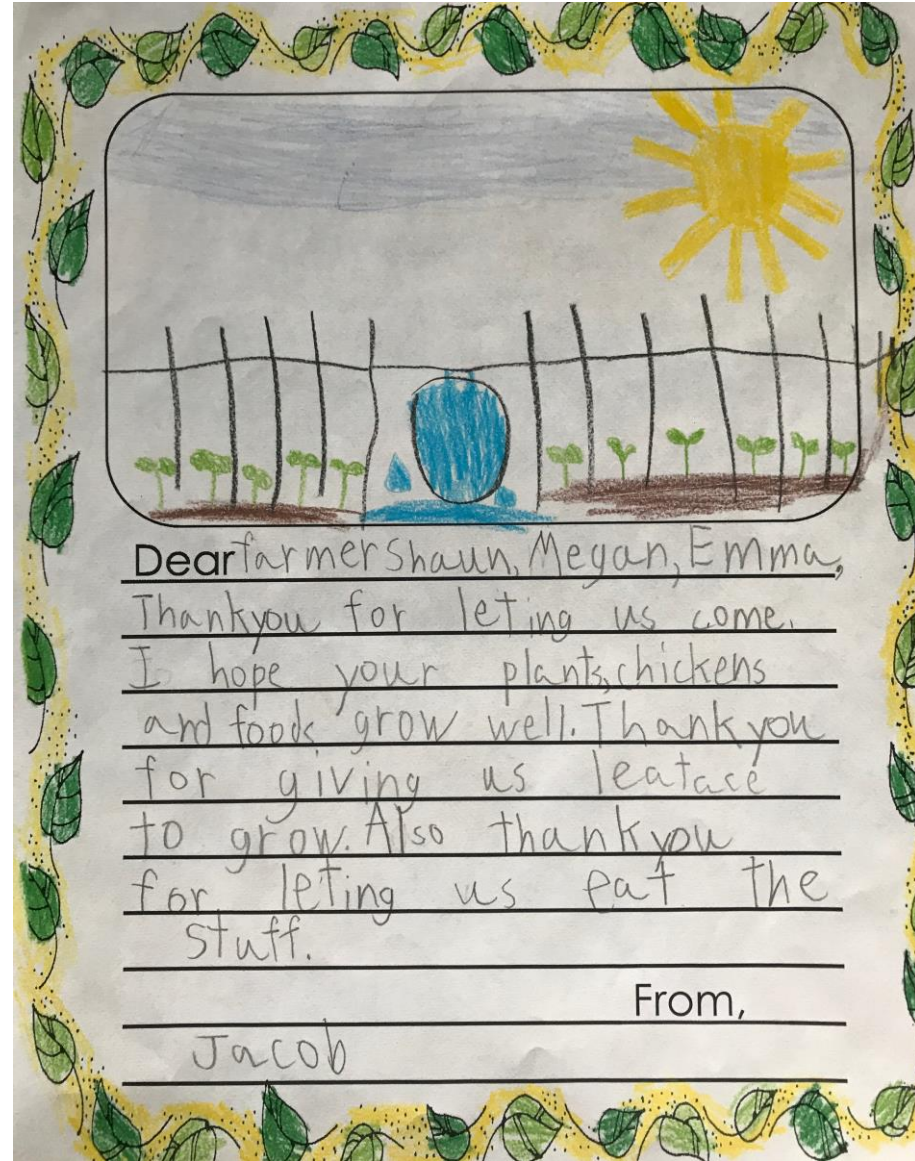 Dear farmer Shaun, Megan, Emma,
Thankyou for leting us come.
I hope your plants, chickens
and foods grow well. Thank you
for giving us leatace
to grow. Also thank you
for leting us eat the
stuff.
From,
Jacob